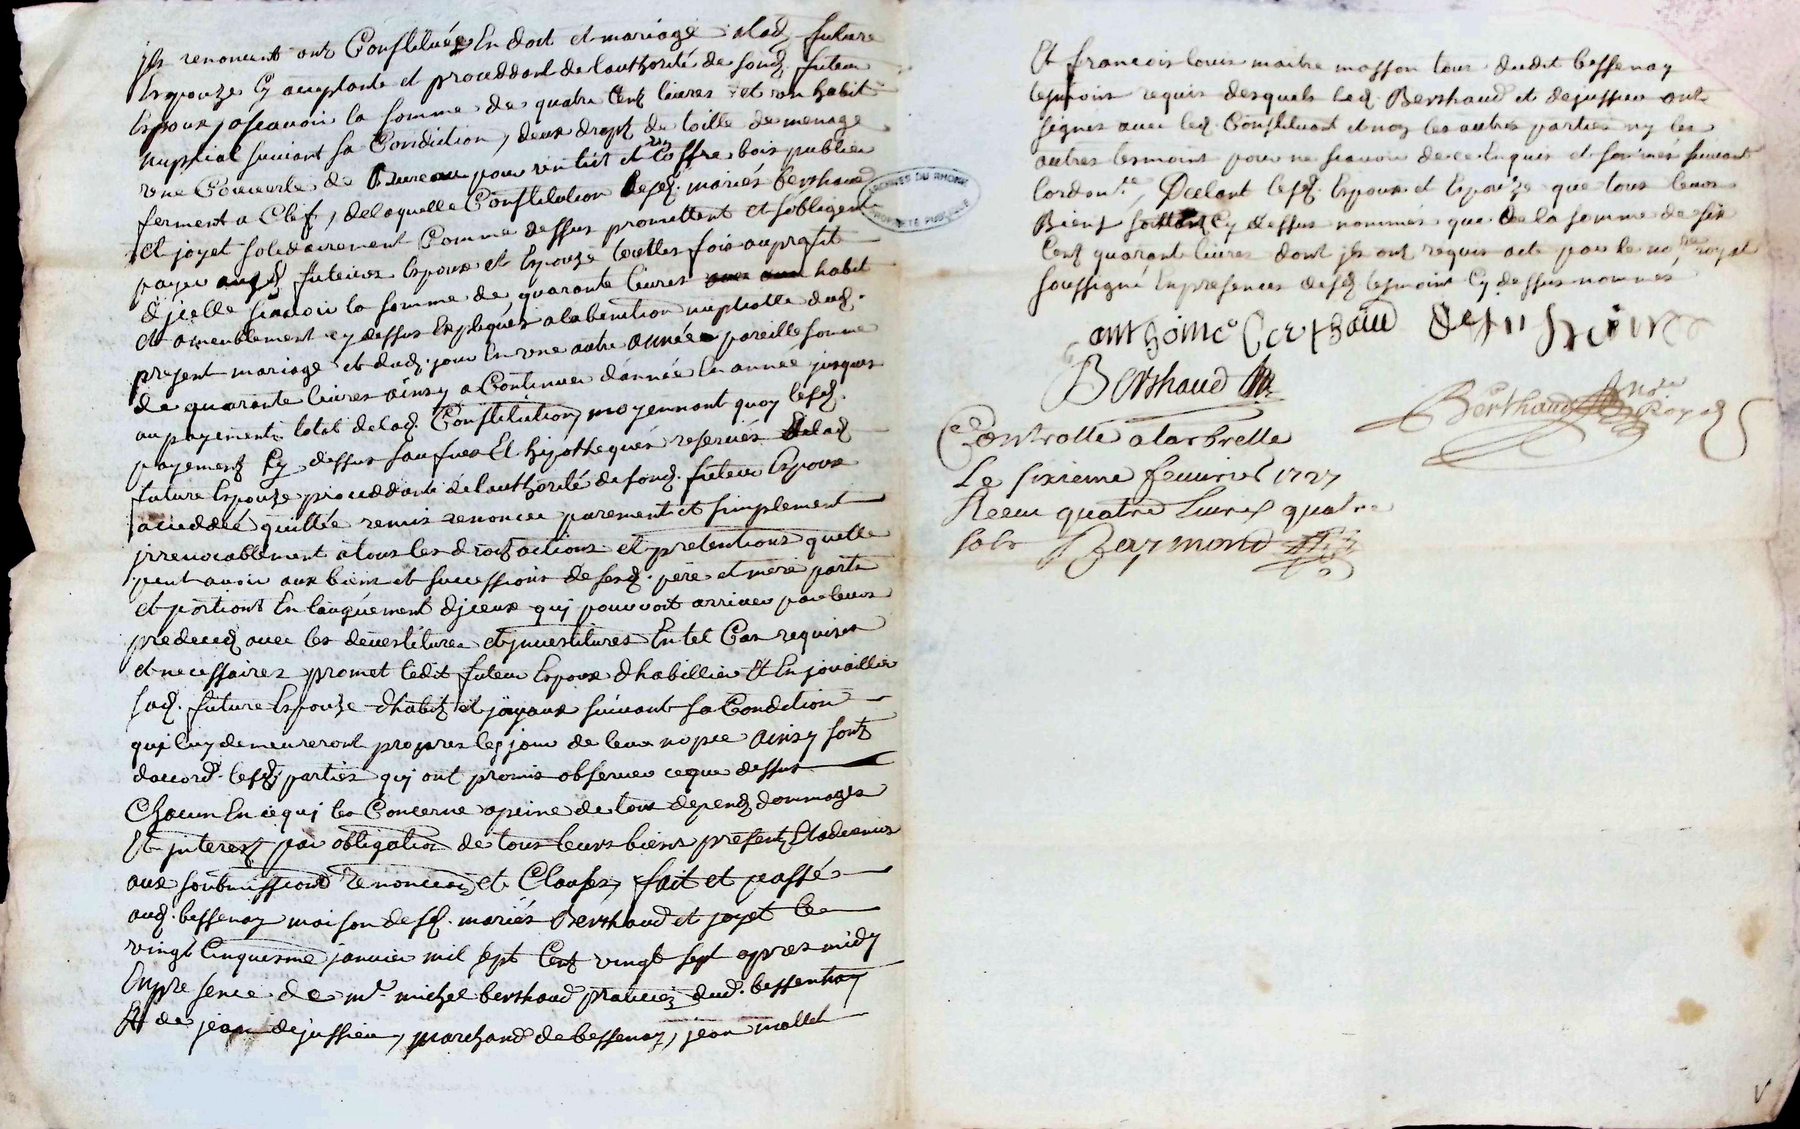 jls renoncent ont Constituées En dot et mariage alad. future
Espouze Cy acceptante et proceddant de lauthorité de sond. futeur
Espoux, ascavoir la somme de quatre Cent livres et son habit
nuptial suivant sa Condiction, deux drapt de toille de menage
une Couverte de Bureau un Coffre bois
ferment a Clef, delaquelle Constitution lesd. mariés berthaud
et joyet solidairement Comme dessus promettent et sobligent
payer auxd. futeurs Espoux et Espouze touttes fois au profit
djcelle scavoir la somme de quarante livres habit
et ameublement cy dessus Expliqués alabenition nuptialle dud.
present mariage et dud. jour En une autre année pareille somme
de quarante livres ainsy a Continuer dannée En année jusques
au payement total delad. Constitution, moyennant quoy lesd.
payement Cy dessus reservés delad.
future Espouze proceddante de lauthorité desond. futeur Espoux
a ceddée quittée remis renoncer purement et simplement
jrrevocablement a tous les droits actions et pretentions quelle
peut avoir aux biens et successions de sesd. pere et mere parts
et portions En laugment djceux quj pouvoit arriver par leurs
predeced. avec les devestitures et jnvestitures En tel Cas requises
et necessaires promet ledit futeur Espoux dhabillier Et En jouaillier
sad. future Espouze dhabits et joyaux suivant sa Condition
quj luy demeureront propres les jour de leur nopce ainsy sont
daccord. lesd. parties quj ont promis observer ceque dessus
Chacun En ce quj les Concerne apeine de tous depend dommages
Et jnterest par obligation de tous leurs biens present Et advenir
aux soubmissions renonciaõn et Clauses, fait et passé
aud. bessenay maison desd. mariés Berthaud et joyet le
vingt Cinquiesme janvier mil sept Cent vingt sept apres midy
En presence de mr. michel berthaud praticien dud. bessenay
Et de jean dejussieu, marchand de bessenay, jean mollet
Et francois louis maitre masson tous dudit bessenay
tesmoins requis desquels led. Berthaud et dejussieu ont
signes avec led. Constituant et non les autres parties ny les
autres tesmoins pour ne scavoir de ce Enquis et sommés suivant
lordonce, Declarant lesd. Espoux et Espouze que tous leurs
Biens Cy dessus nommés que de la somme de six
Cent quarante livres dont jls ont requis acte par le nore royal
soussigné En presences desd. tesmoins Cy dessus nommés
anthoine berthaud dejussieu
Berthaud
Berthaud nore Royal
Controllé alarbrelle
Le sixieme feuvrier 1727
Receu quatre Livres quatre
sols Reymond
ARCHIVES DU RHONE
PROPRIÉTÉ PUBLIQUE